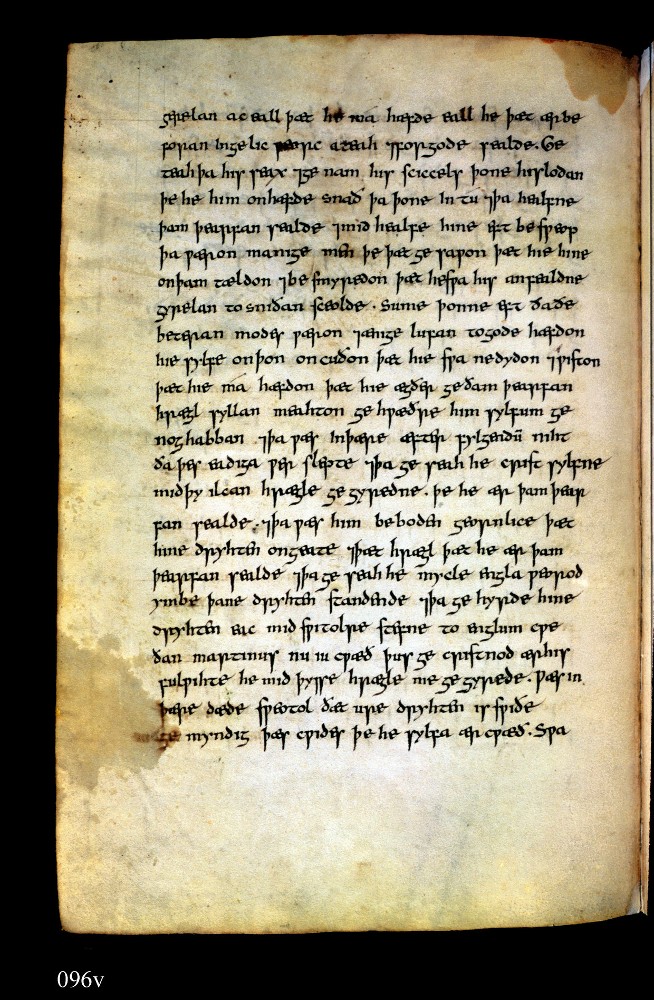 gerelan ac eall þæt he ma hæfde eall he þæt ær be
foran in gelic weorc ateah ⁊ for gode sealde. Ge
teah þa his seax ⁊ ge nam his sciccels þone his lodan
þe he him on hæfde snað þa þone in tu ⁊ þa healfne
þam þearfan sealde ⁊ mid healfe hine eft be sweop
þa wæron manige men þe þæt ge sawon þæt hie hine
on þam tældon ⁊ be smyredon þæt he swa his anfealdne
gyrelan to sniðan sceolde. Sume þonne eft ða ðe
beteran modes wæron ⁊ ænige lufan to gode hæfdon
hie sylfe on þon oncuðon þæt hie swa ne dydon ⁊ wiston
þæt hie ma hæfdon þæt hie ægðer ge ðam þearfan
hrægl syllan meahton ge hwæðre him sylfum ge
nog habban. ⁊ þa wæs in þære æfter fylgendū niht
ða þes eadiga wer slepte ⁊ þa ge seah he crist sylfne
mid þy ilcan hrægle ge gyredne. þe he ær þam þear
fan sealde. ⁊ þa wæs him beboden geornlice þæt
hine dryhten ongeate ⁊ þæt hrægl þæt he ær þam
þearfan sealde ⁊ þa ge seah he mycle engla weorod
ymbe þane dryhten standende ⁊ þa ge hyrde hine
dryhten eac mid switolre stefne to englum cwe
ðan martinus nu iu cwæð þus ge cristnod ær his
fulwihte he mid þysse hrægle me ge gyrede. Wæs in
þære dæde sweotol ðæt ure dryhten is swiðe
ge myndig þæs cwides þe he sylfa ær cwæð. Swa
096v